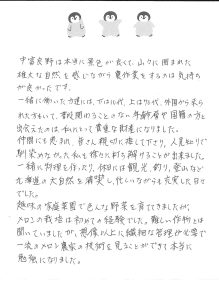 中富良野は本当に景色が良くて、山々に囲まれた
雄大な自然を感じながら農作業をするのは気持ち
が良かったです。
一緒に働いた方達には、下は10代、上は70代、外国から来ら
れた方もいて、普段関わることのない年齢層や国籍の方と
出会えたのは、私にとって貴重な財産になりました。
仲間にも恵まれ、皆さん親切に接して下さり、人見知りで
馴染めなかった私も徐々に打ち解けることが出来ました。
一緒に料理を作ったり、休日には観光、釣り、登山など
北海道の大自然を満喫し、忙しいながらも充実した日々
でした。
趣味の家庭菜園で色んな野菜を育ててきましたが、
メロンの栽培は初めての経験でした。難しい作物とは
聞いていましたが、想像以上に繊細な管理が必要で
一流のメロン農家の技術を見ることができて本当に
勉強になりました。